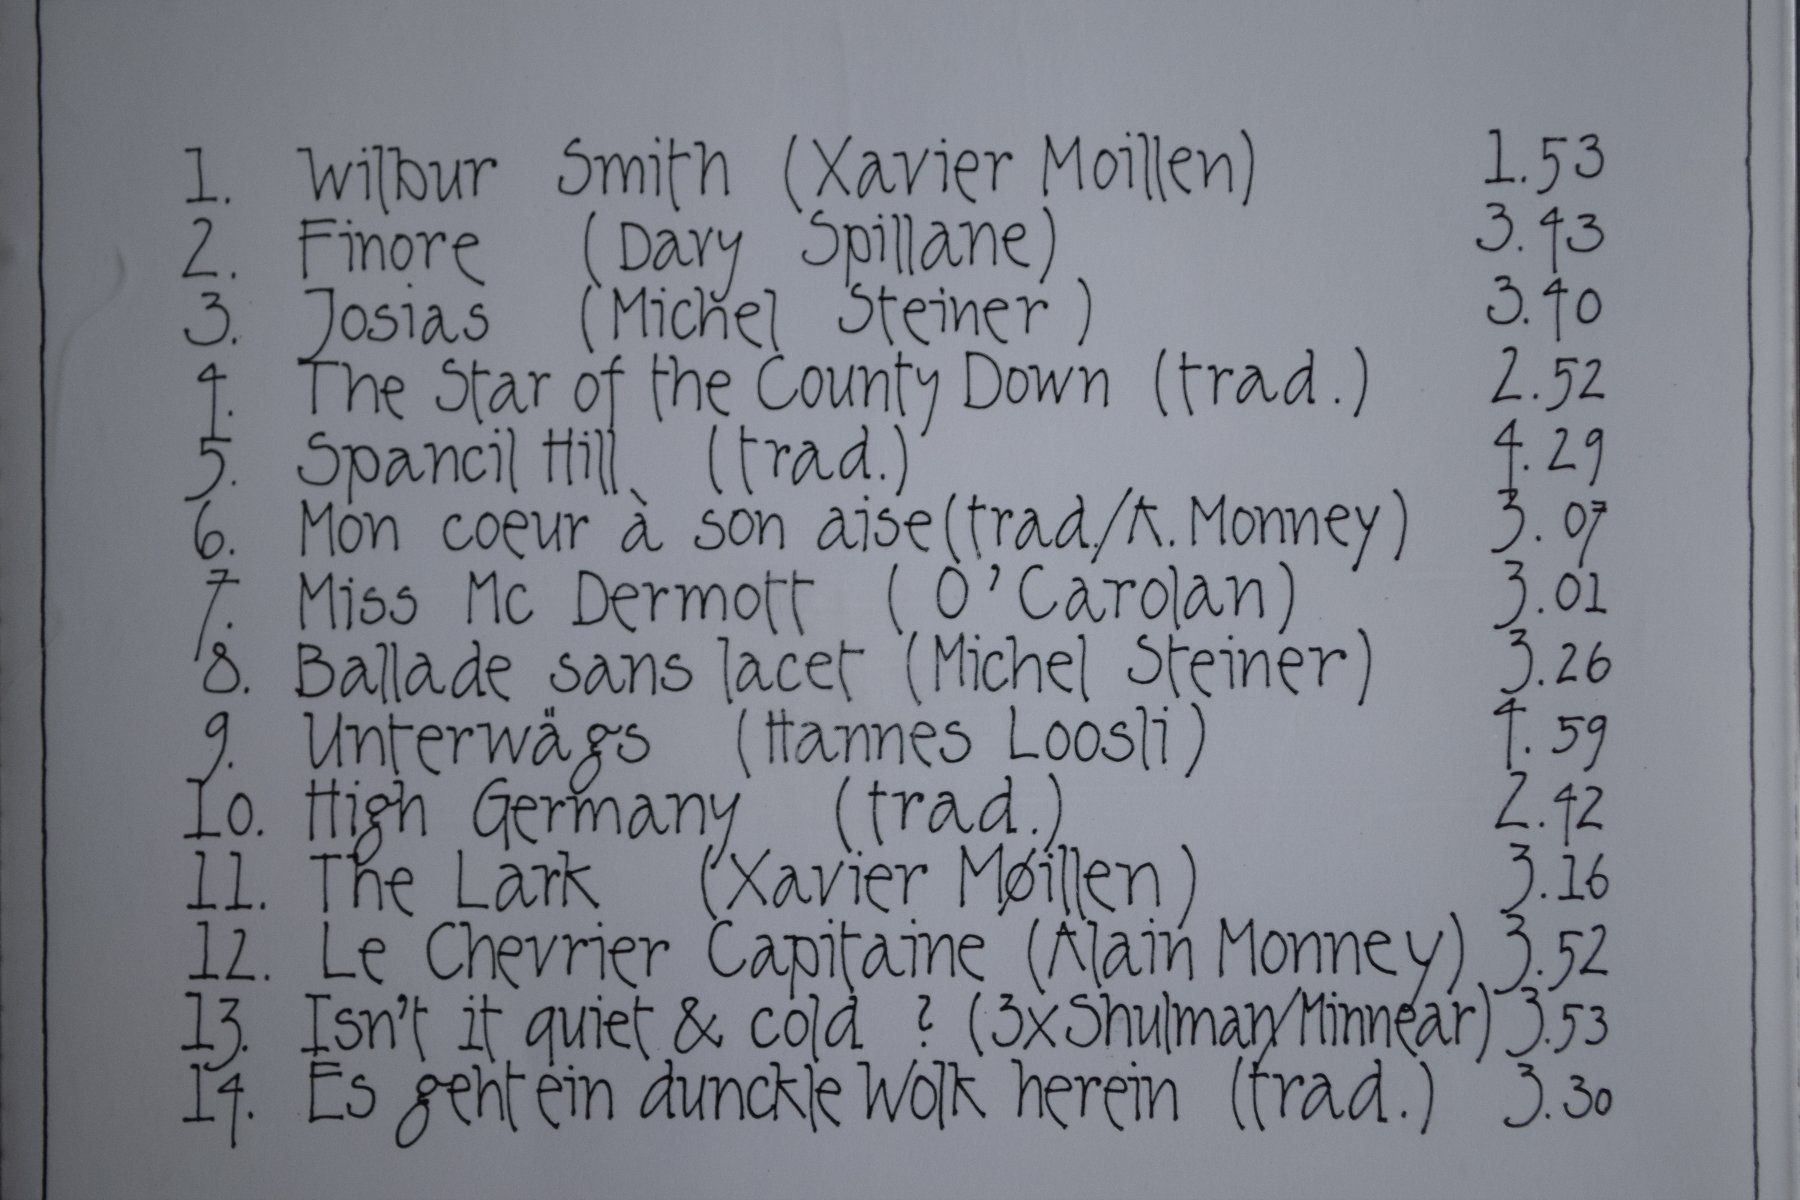 1. Wilbur Smith (Xavier Moillen) 1.53
2. Finore (Davy Spillane) 3.43
3. Josias (Michel Steiner) 3.40
4. The Star of the County Down (trad.) 2.52
5. Spancil Hill (trad.) 4.29
6. Mon coeur à son aise (trad./A. Monney) 3.07
7. Miss Mc Dermott (O'Carolan) 3.01
8. Ballade sans lacet (Michel Steiner) 3.26
9. Unterwägs (Hannes Loosli) 4.59
10. High Germany (trad.) 2.42
11. The Lark (Xavier Møillen) 3.16
12. Le Chevrier Capitaine (Alain Monney) 3.52
13. Isn't it quiet & cold ? (3xShulman/Minnear) 3.53
14. Es geht ein dunckle Wolk herein (trad.) 3.30